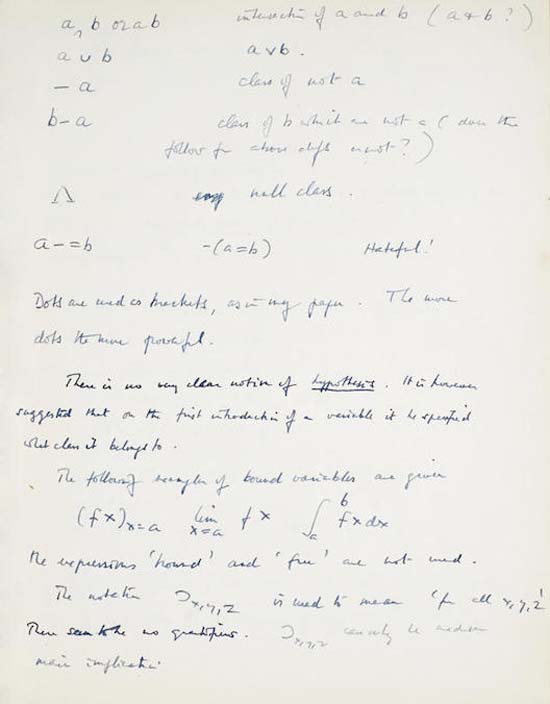 a ∩ b or ab intersection of a and b ( a & b ? )
a ∪ b a ∨ b .
– a class of not a
b – a class of b which are not a ( does this
follow fr above defs or not ? )
Λ null class .
a – = b – ( a = b ) Hateful !
Dots are used as brackets , as in my paper . The more
dots the more powerful .
There is no very clear notion of hypothesis . It is however
suggested that on the first introduction of a variable it be specified
what class it belongs to .
The following examples of bound variables are given
(f x)x=a lim x=a f x ∫ₐᵇ fx dx
the expressions 'bound' and 'free' are not used .
The notation Ɔx,y,z is used to mean 'for all x,y,z'
There seem to be no quantifiers . Ɔx,y,z can only be used on
main implication